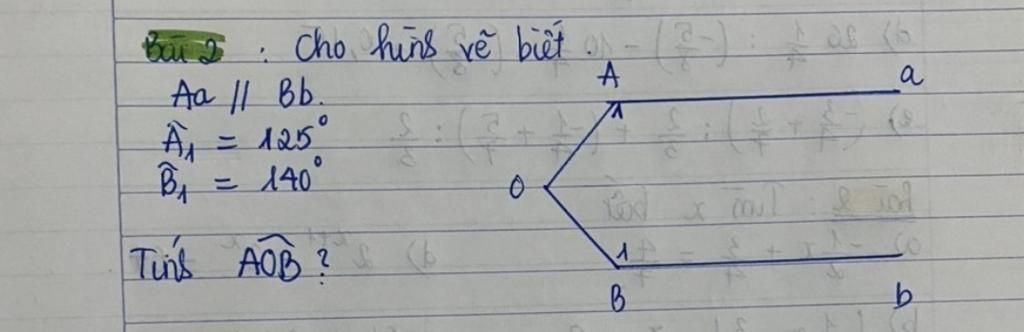 Bài 2 : Cho hình vẽ biết
Aa // Bb.
Â₁ = 125°
B̂₁ = 140°
Tính AÔB ?
A a
1
O
1
B b